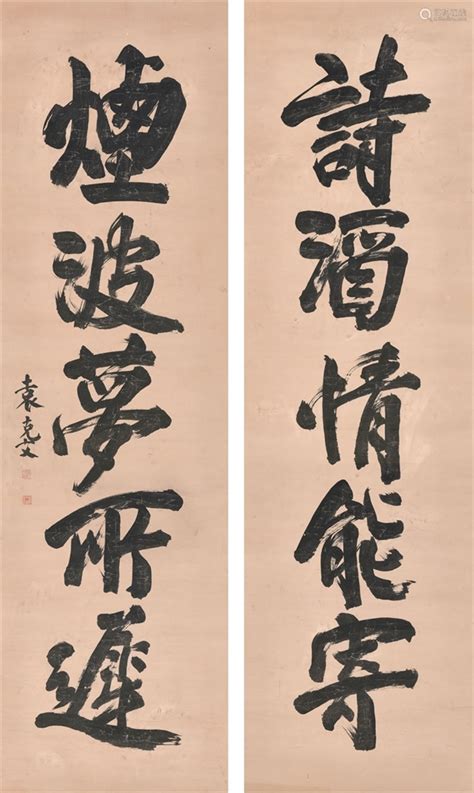 詩酒情能寄
煙波夢所遲
袁克文